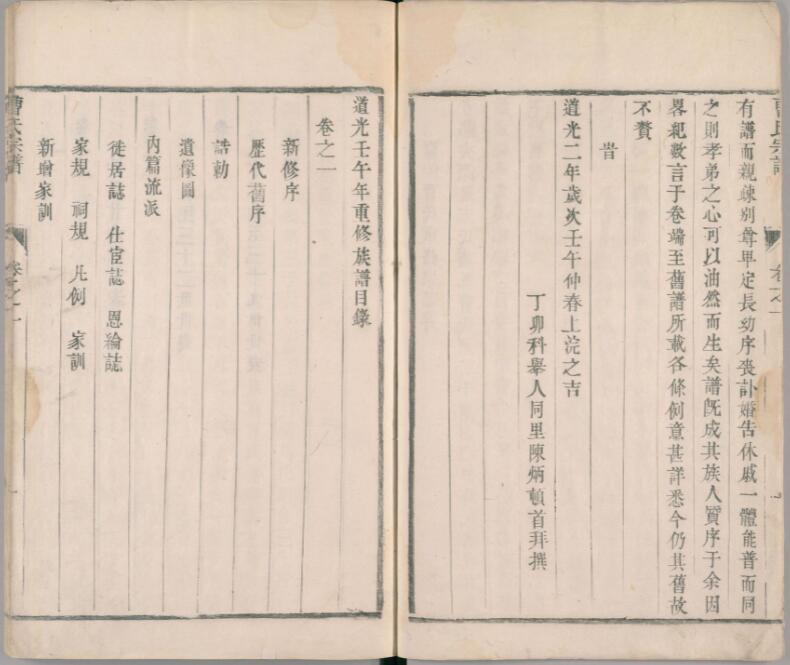 有譜而親疎別尊卑定長幼序喪訃婚告休戚一體能普而同
之則孝弟之心可以油然而生矣譜既成其族人質序于余因
畧紀數言于卷端至舊譜所載各條例意甚詳悉今仍其舊故
不贅
旹
道光二年歲次壬午仲春上浣之吉
丁卯科舉人同里陳炳頓首拜撰
道光壬午年重修族譜目錄
卷之一
新修序
歷代舊序
誥勅
遺像圖
內篇流派
徙居誌 仕宦誌 恩綸誌
家規 祠規 凡例 家訓
新增家訓
曹氏宗譜 卷之一